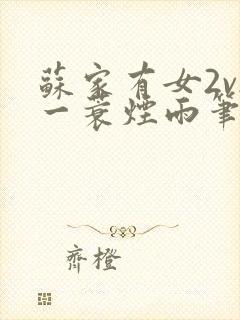 蘇家有女2v
一蓑煙雨筆
齊橙